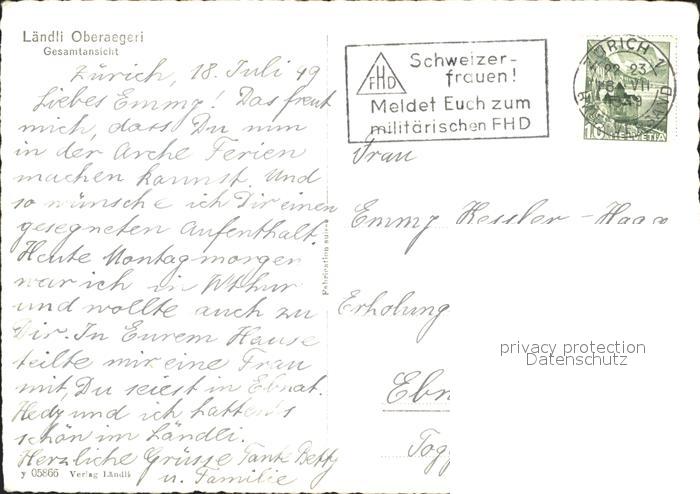 Ländli Oberaegeri
Gesamtansicht
Zürich, 18. Juli 49
Liebes Emmy! Das freut
mich, dass Du nun
in der Arche Ferien
machen kannst. Und
so wünsche ich Dir einen
gesegneten Aufenthalt.
Heute Montagmorgen
war ich in W'thur
und wollte auch zu
Dir. In Eurem Hause
teilte mir eine Frau
mit, Du seiest in Ebnat.
Hedy und ich hatten's
schön im Ländli.
Herzliche Grüsse Tante Betty
u. Familie
y 05866 Verlag Ländli
Fabrication suisse
FHD
Schweizer-
frauen!
Meldet Euch zum
militärischen FHD
ZÜRICH 1
22-23
VII
HELVETIA
10
Frau
Emmy Kessler-Haao
Erholung
Ebn
Togg
privacy protection
Datenschutz